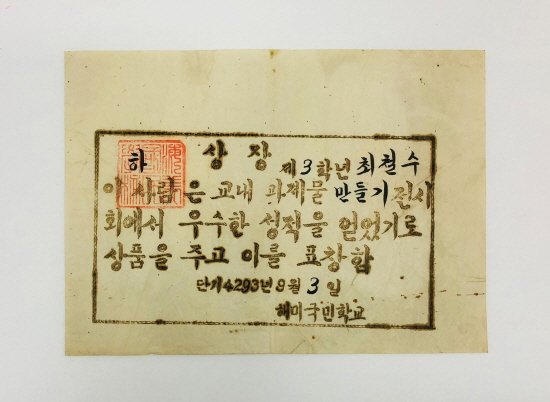 하 상장
제3학년 최철수
이 사람은 교내 과제물 만들기 전시
회에서 우수한 성적을 얻었기로
상품을 주고 이를 표창함
단기4293년 9월 3일
해미국민학교